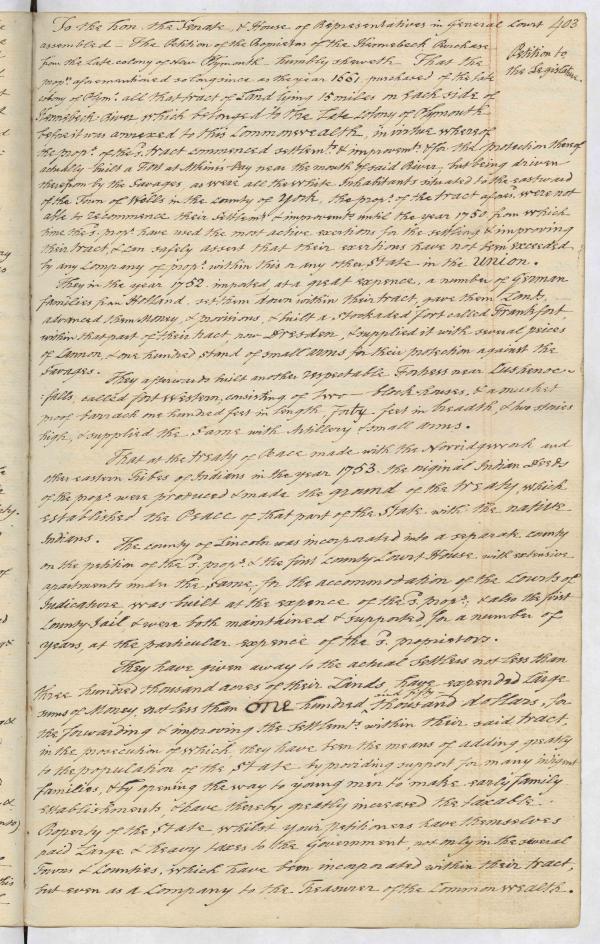 To the Hon. the Senate, & House of Representatives in General Court 403
assembled - The Petition of the Proprietors of the Kennebeck Purchase
Petition to
the Legislature.
from the late colony of New Plymouth humbly sheweth That the
prop.s aforementioned so long since as the year 1661 purchased of the late
colony of Plym.o all that tract of Land lying 15 miles on each side of
Kennebeck River which belonged to the Late Colony of Plymouth
before it was annexed to this Commonwealth, in virtue whereof
the prop.s of the s.d tract commenced settlem.ts & improvem.ts & for the protection thereof
actually built a Fort at Atkins's Bay near the mouth of said River, but being driven
therefrom by the Savages, as were all the white Inhabitants situated to the eastward
of the Town of Wells in the county of York, the prop.s of the tract afores.d were not
able to recommence their Settlem.ts & improvem.ts until the year 1750 from which
time the s.d prop.s have used the most active exertions for the settling & improving
their tract, & can safely assert that their exertions have not been exceeded
by any Company of prop.s within this or any other State in the Union.
They in the year 1752 imported, at a great expence, a number of German
families from Holland, set them down within their tract, gave them Lands,
advanced them Money, & provisions, & built a stockaded fort called Frankfort
within that part of their tract, now Dresden, & supplied it with several peices
of Cannon, & one hundred stand of small arms, for their protection against the
Savages.
They afterwards built another respectable Fortress near Cushenoc-
-falls, called fort Western, consisting of two block-houses, & a musket
proof barrack one hundred feet in length, forty feet in breadth, & two stories
high, & supplied the same with Artillery & small arms.
That at the treaty of Peace made with the Norridgewock and
other eastern Tribes of Indians in the year 1753 the original Indian Deeds
of the prop.s were produced & made the ground of the treaty which
established the Peace of that part of the State with the native
Indians.
The county of Lincoln was incorporated into a separate county
on the petition of the s.d prop.s & the first county Court House with extensive
apartments under the same, for the accommodation of the Courts of
Judicature, was built at the expence of the s.d prop.s, & also the first
County Jail & were both maintained & supported for a number of
years, at the particular expence of the s.d proprietors.
They have given away to the actual Settlers not less than
three hundred thousand acres of their Lands, have expended large
and fifty
sums of Money, not less than one hundred thousand dollars, for
the forwarding & improving the Settlem.ts within their said tract,
in the prosecution of which they have been the means of adding greatly
to the population of the State by providing support for many indigent
families, & by opening the way to young men to make early family
establishments, & have thereby greatly increased the taxable
Property of the State, whilst your Petitioners have themselves
paid Large & heavy taxes to the Government, not only in the several
Towns & Counties, which have been incorporated within their tract,
but even as a Company to the Treasurer of the Commonwealth.